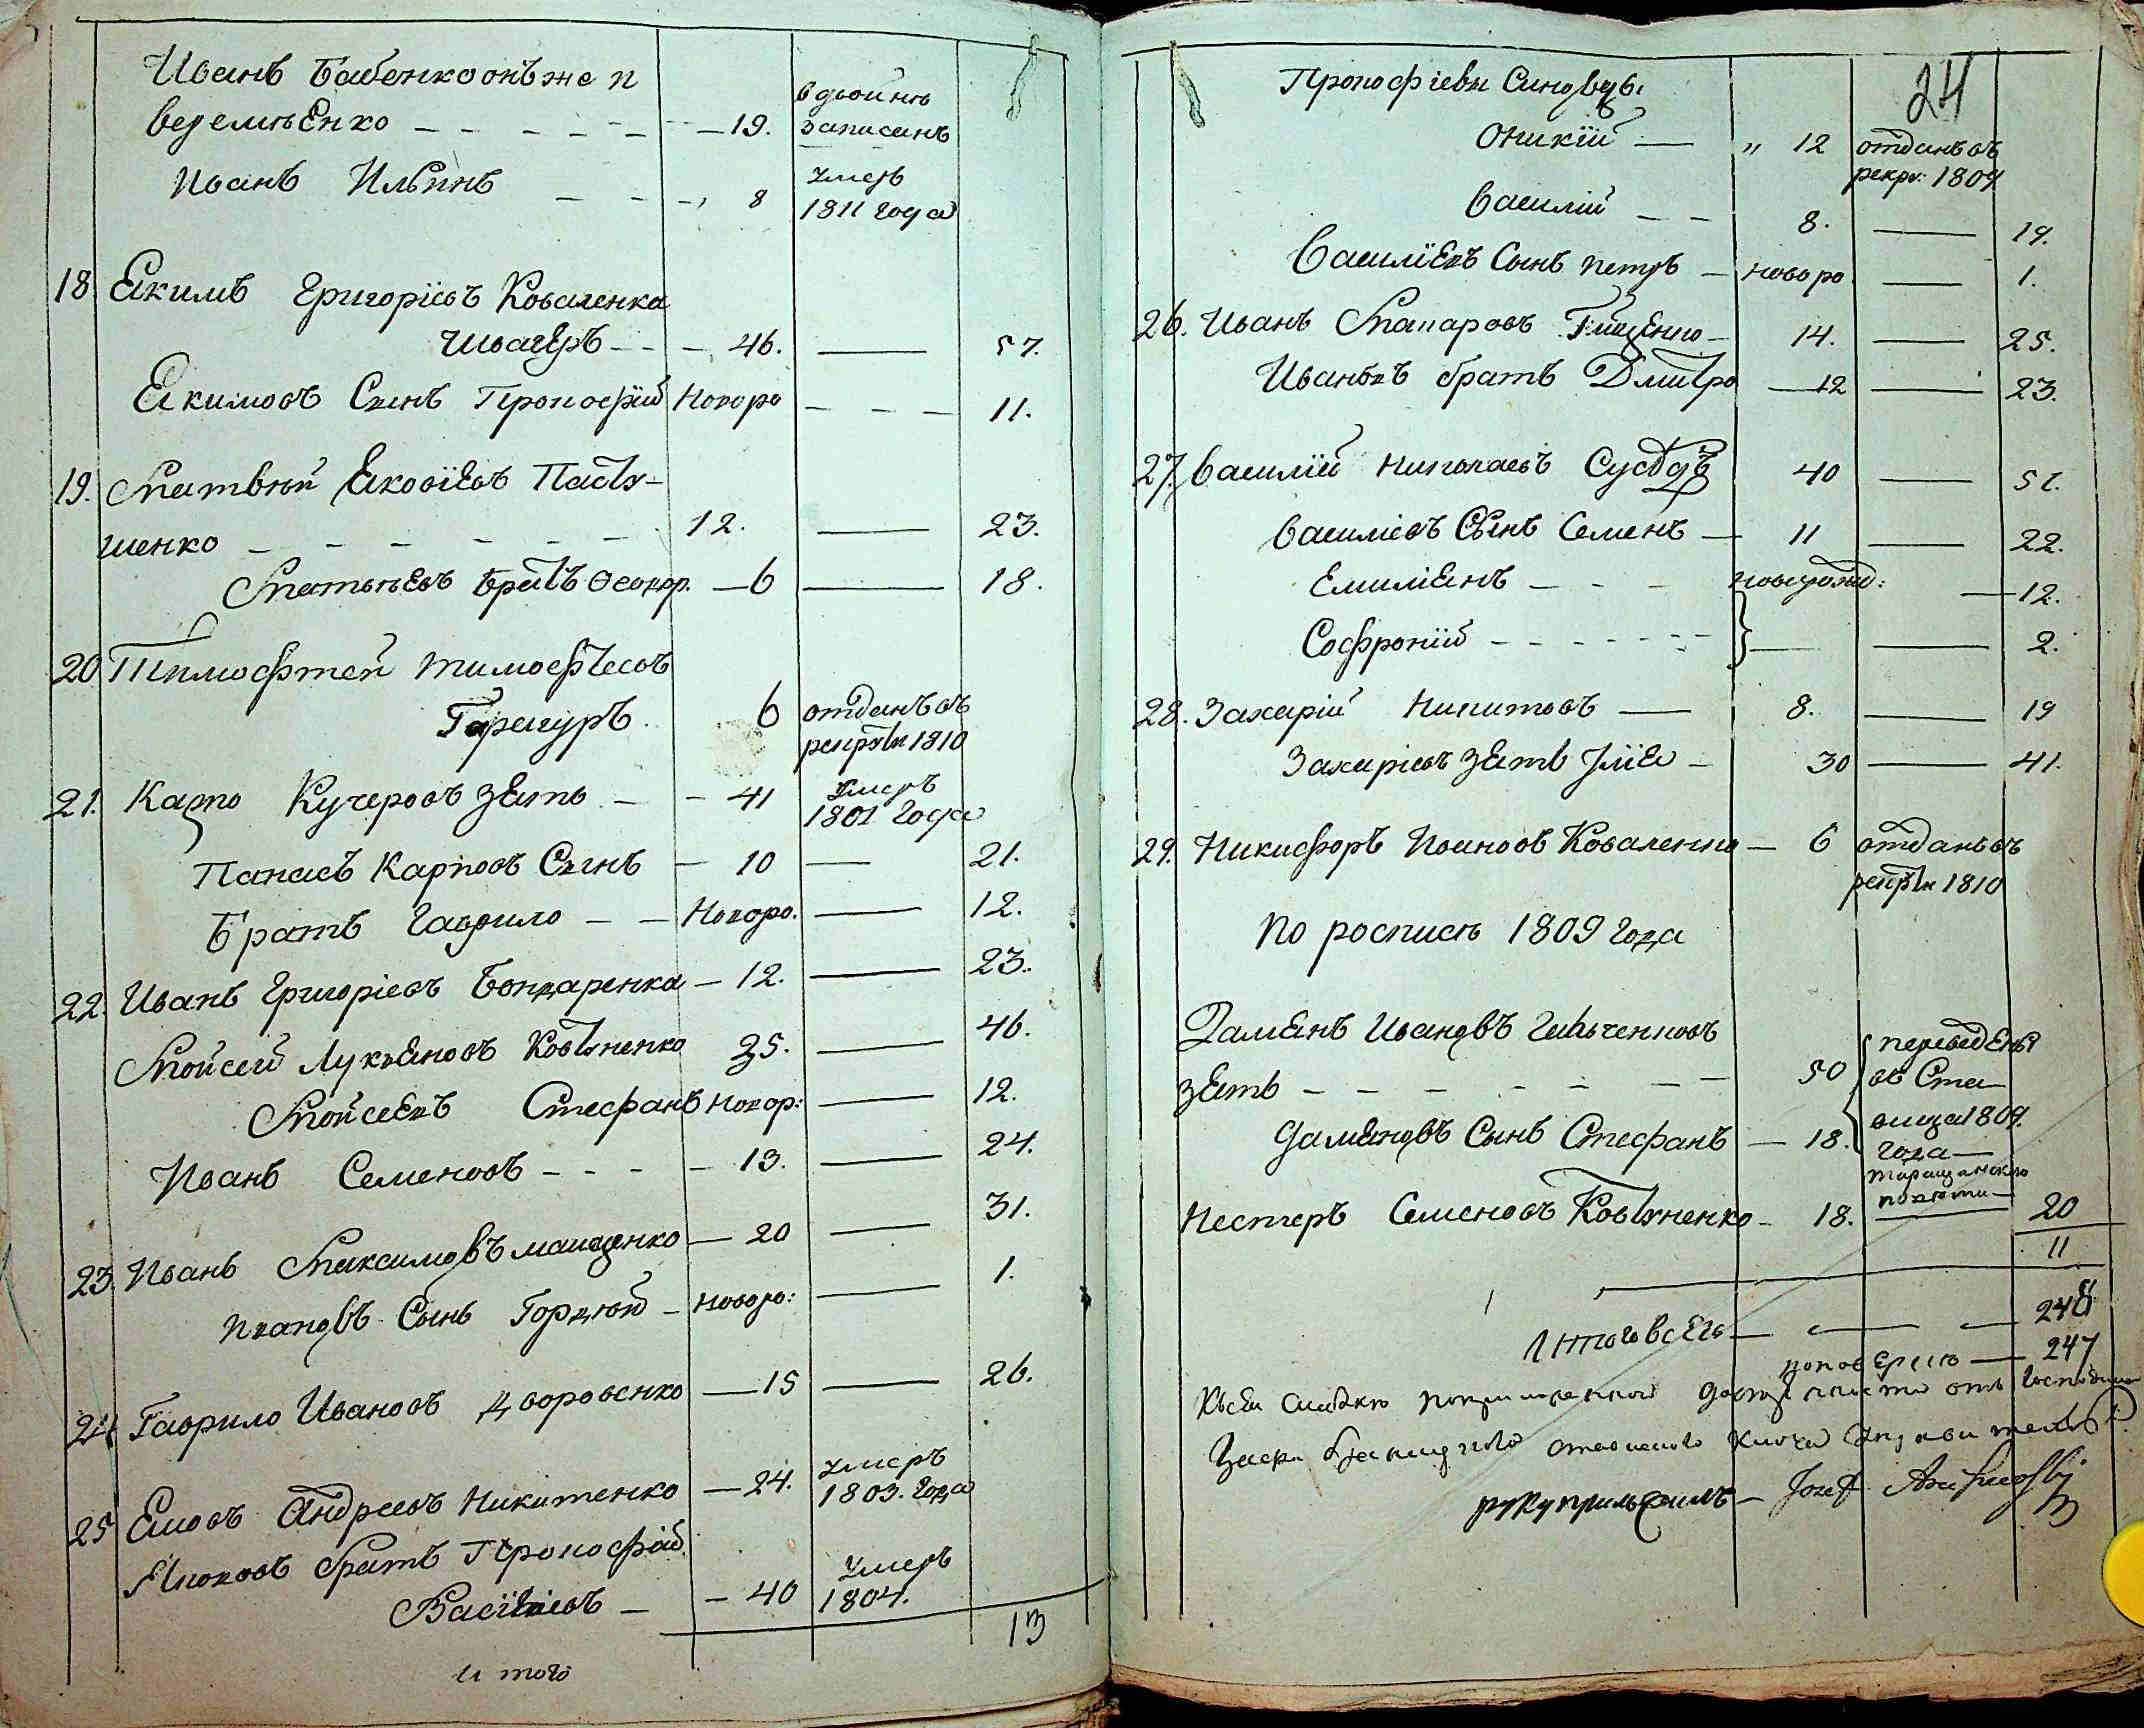 Иванъ Бабенко онъ же и
веремѣенко — 19. вдвойнѣ записанъ
Иванъ Ильинъ — 8 умеръ 1811 года
18 Екимъ Григоріевъ Коваленка
Швагеръ — 46. — 57.
Екимовъ Сынъ Прокофій Новоро — 11.
19. Матвѣй Яковлевъ Пасту-
шенко — 12. — 23.
Матвѣевъ братъ Ѳеодор. — 6 — 18.
20 Тимофтей Тимофѣевъ
6 отданъ въ рекруты 1810
21. Карпо Кучеровъ зять — 41 умеръ 1801 года
Панасъ Карповъ Сынъ — 10 — 21.
Братъ Гаврило — Новоро. — 12.
22. Иванъ Григоріевъ Бондаренка — 12. — 23.
Мойсей Лукъяновъ Ковтуненко 35. — 46.
Мойсеевъ Стефанъ Новор: — 12.
Иванъ Семеновъ — 13. — 24.
23. Иванъ Максимовъ — 20 — 31.
Ивановъ Сынъ Гордѣй — Новоро: — 1.
24 Гаврило Ивановъ — 15 — 26.
25 Андреевъ Никитенко — 24. умеръ 1803. года
братъ Прокофій
Васільевъ — 40 умеръ 1804.
13
и того
24
Прокофіевы Сыновья
Оникій — " 12 отданъ въ рекру: 1807
Василій — 8. — 19.
Василіевъ Сынъ Петръ — Новоро — 1.
26. Иванъ Макаровъ — 14. — 25.
Ивановъ братъ Дмитро — 12 — 23.
27. Василій Николаевъ — 40 — 51.
Василіевъ Сынъ Семенъ — 11 — 22.
Емиліянъ — новорожд: — 12.
Софроній — 2.
28. Захарій Никитовъ — 8. — 19
Захаріевъ зять Ілія — 30 — 41.
29. Никифоръ Ивановъ Коваленко — 6 отданъ въ рекруты 1810
По росписи 1809 года
Дамянъ Ивановъ
зять — 50 переведены въ Ста-
Дамяновъ Сынъ Стефанъ — 18. вища 1809. года —
Таращанского повѣта —
Нестеръ Семеновъ Ковтуненко — 18. — 20
11
Итого всего — 248
247
руку приложилъ — Jozef